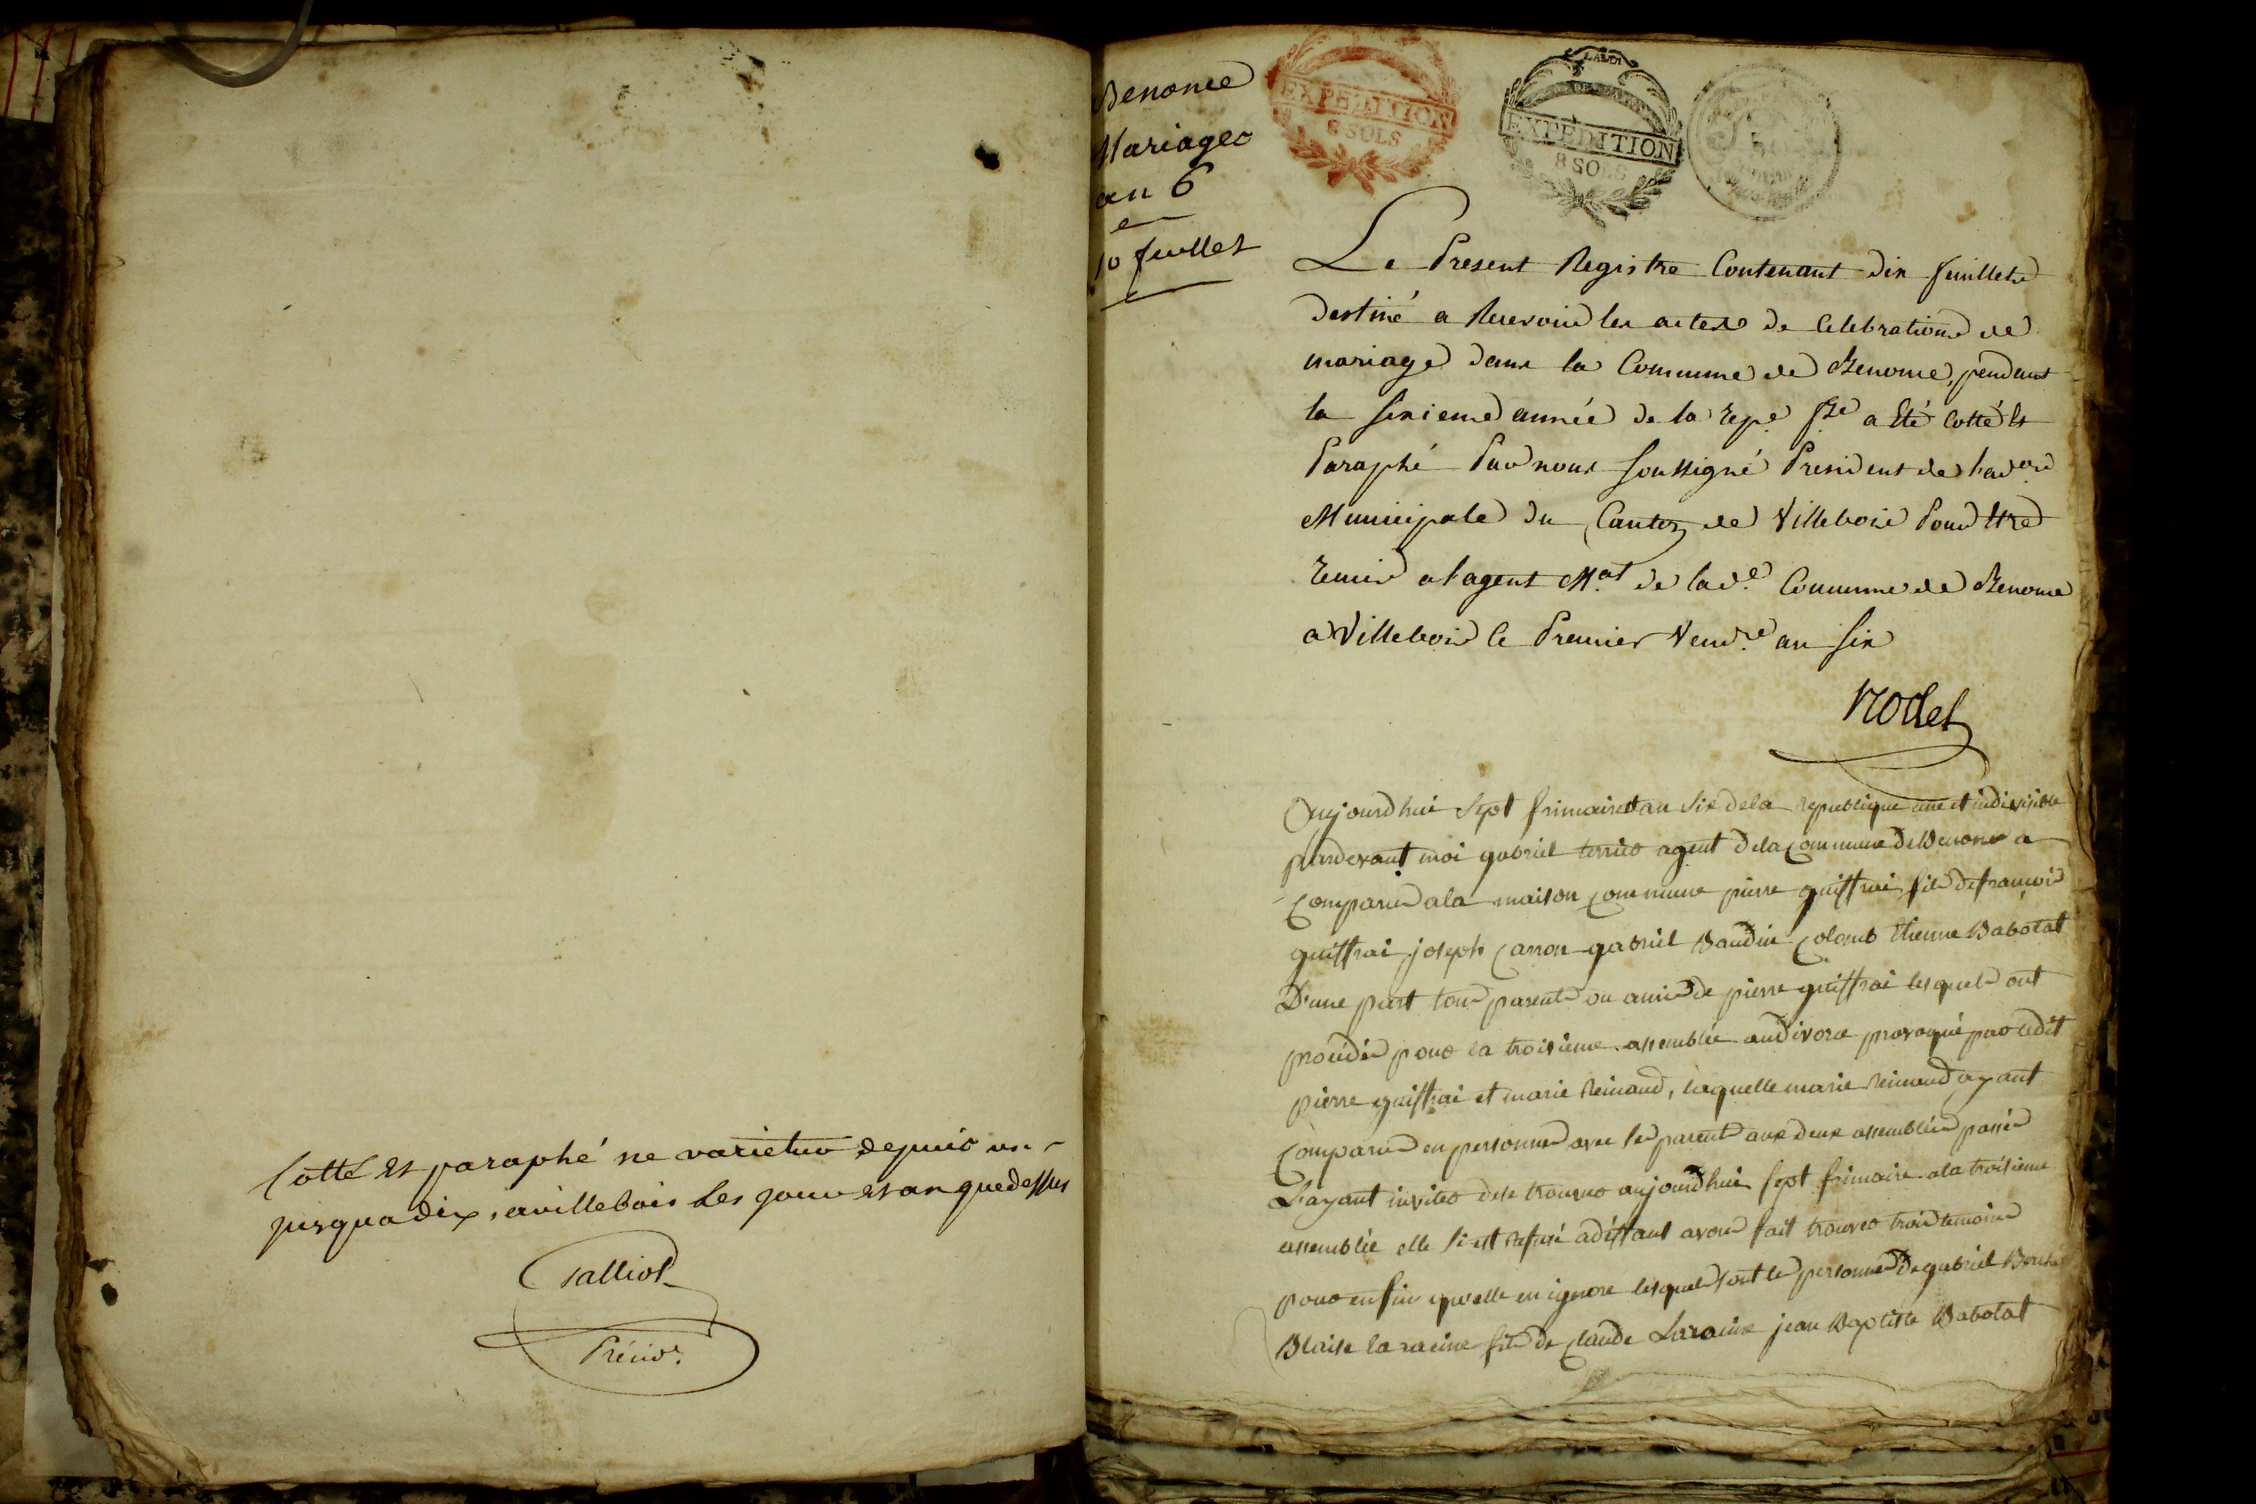 Cotté et paraphé ne varietur depuis un
jusqua dix, a villebois les jour et an que dessus
Talliot
Présidt.
Benonce
Mariages
an 6
10 feuillet
EXPEDITION
6 SOLS
EXPEDITION
8 SOLS
Le Present Registre Contenant dix feuillets
destiné a Recevoir les actes de Celebrations de
mariage dans la Commune de Benonce, pendant
la sixieme année de la rep.e fse a Eté Cotté Et
Paraphé Par nous soussigné President de l'ad.on
Municipale du Canton de Villebois Pour Etre
remis a l'agent M.al de lad.e Commune de Benonce
a Villebois le Premier Vend.re an six
rodet
Aujourdhui sept frimaire an six de la republique une et indivisible
pardevant moi gabriel agent de la Commune de Benonce a
Comparu a la maison Commune pierre guiffrai fils de francois
guiffrai joseph Carron gabriel Baudin Colomb Etienne Babolat
D'une part tous parents ou amis de pierre guiffrai lesquels ont
procédé pour la troisieme assemblée au divorce provoqué par ledit
pierre guiffrai et marie Reinaud, laquelle marie Reinaud ayant
Comparu en personne avec ses parents aux deux assemblées passées
L'ayant invité de se trouver aujourdhui sept frimaire a la troisieme
assemblée elle s'est refusé avoir fait trouver trois temoins
pour enfin qu'elle en ignore lesquels sont les personnes de gabriel
Blaise laracine fils de Claude Laracine jean Baptiste Babolat